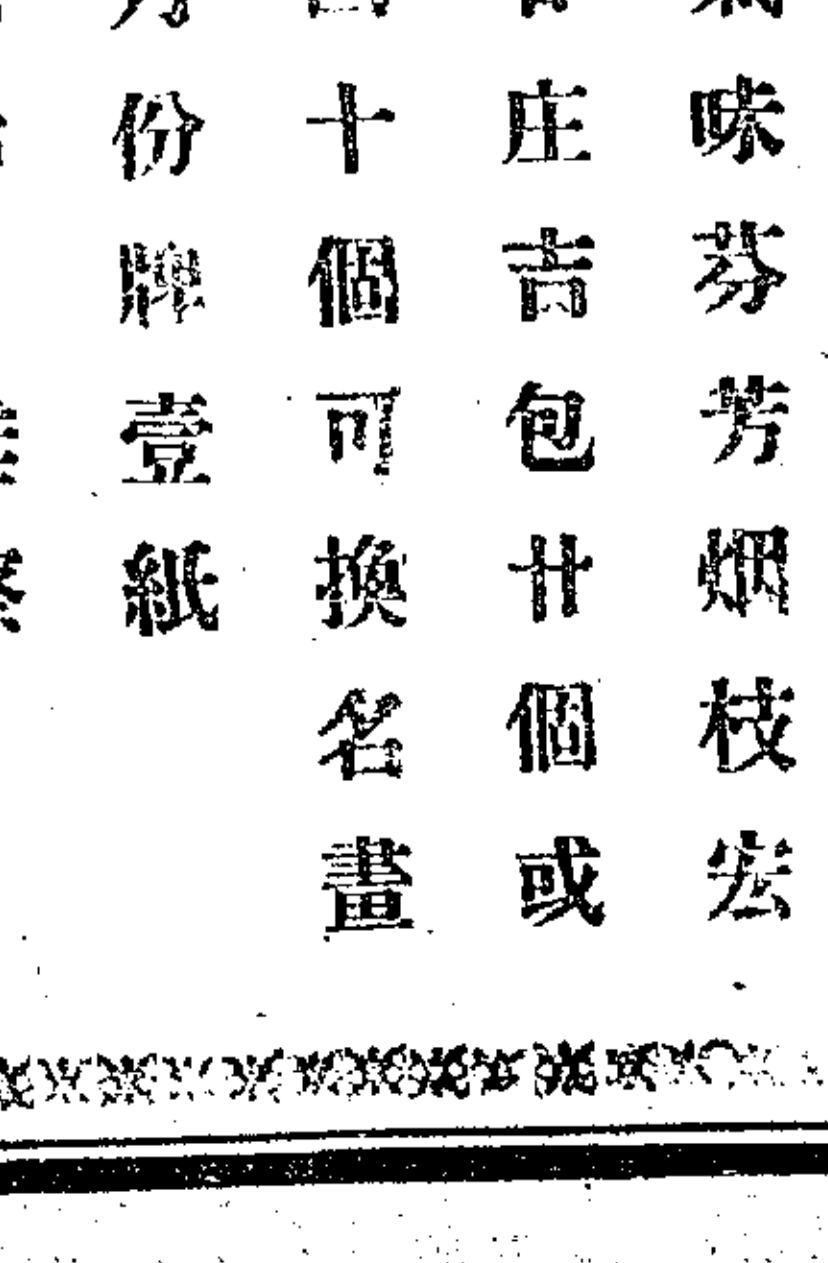 味芬芳烟枝宏
庄吉包廿個或
十個可換名畫
份牌壹紙